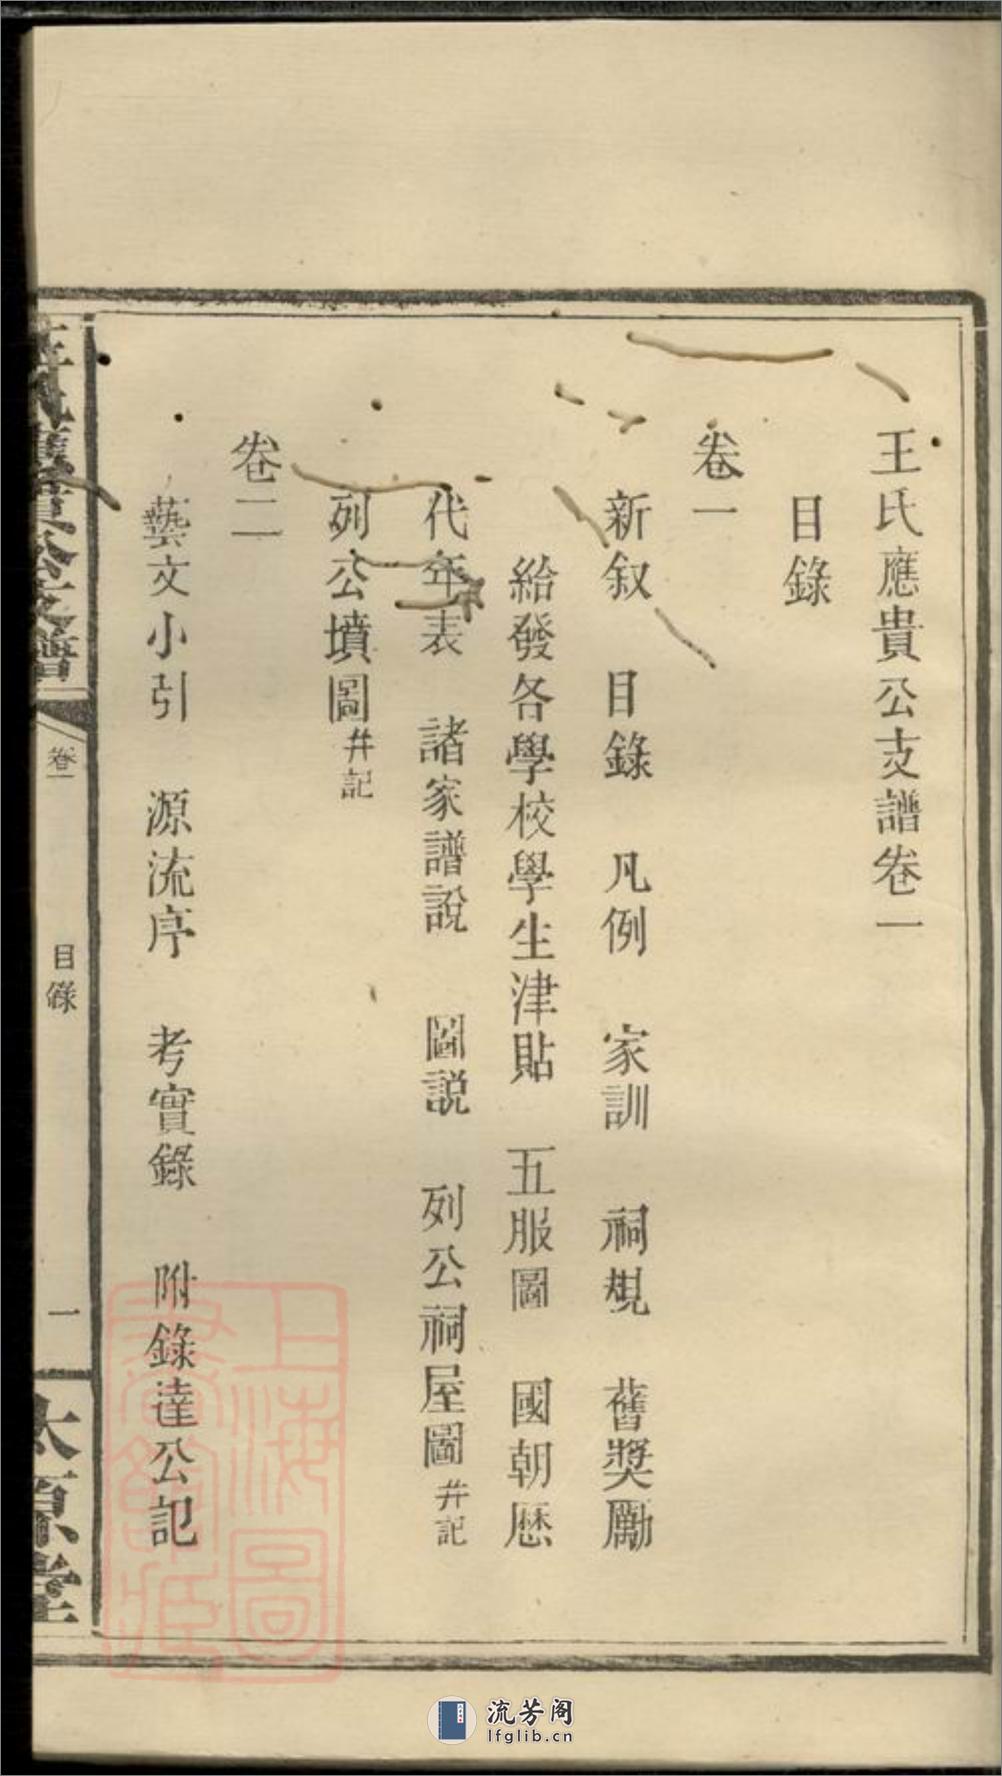 王氏應貴公支譜卷一
目錄
卷一
新叙 目錄 凡例 家訓 祠規 舊獎勵
給發各學校學生津貼 五服圖 國朝歷
代年表 諸家譜說 圖説 列公祠屋圖并記
列公墳圖并記
卷二
藝文小引 源流序 考實錄 附錄達公記
王氏應貴公支譜
卷一
目錄
一
太原堂
上海圖書館藏
流芳阁
lfglib.cn